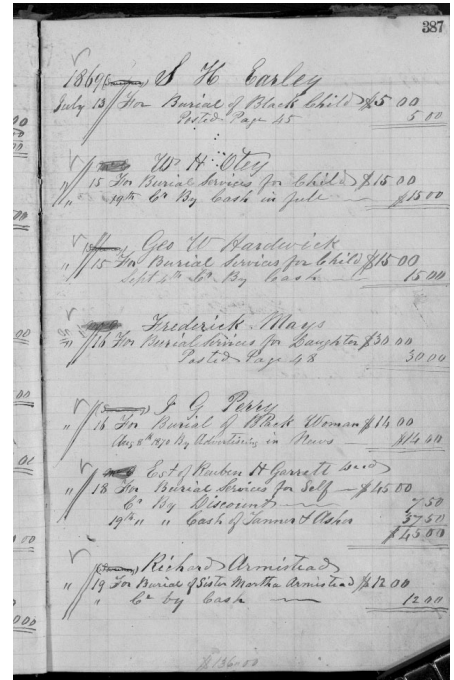 387
1869 S H Earley
July 13 For Burial of Black Child $5 00
Posted Page 45 5 00
W H Otey
" 15 For Burial Services for Child $15 00
" 19th Cr By Cash in full $15 00
Geo W Hardwick
" 15 For Burial Services for Child $15 00
Sept 4th Cr By Cash 15 00
Frederick Mays
" 16 For Burial Services for Daughter $30 00
Posted Page 48 30 00
J G Perry
" 16 For Burial of Black Woman $14 00
Aug 8th 1870 By Advertising in News $14 00
Est of Reuben H Garrett decd
" 18 For Burial Services for Self $45 00
Cr By Discount 7 50
19th " " Cash of Tanner & Asher 37 50
$45 00
Richard Armistead
" 19 For Burial of Sister Martha Armistead $12 00
" Cr by Cash 12 00
$136 00